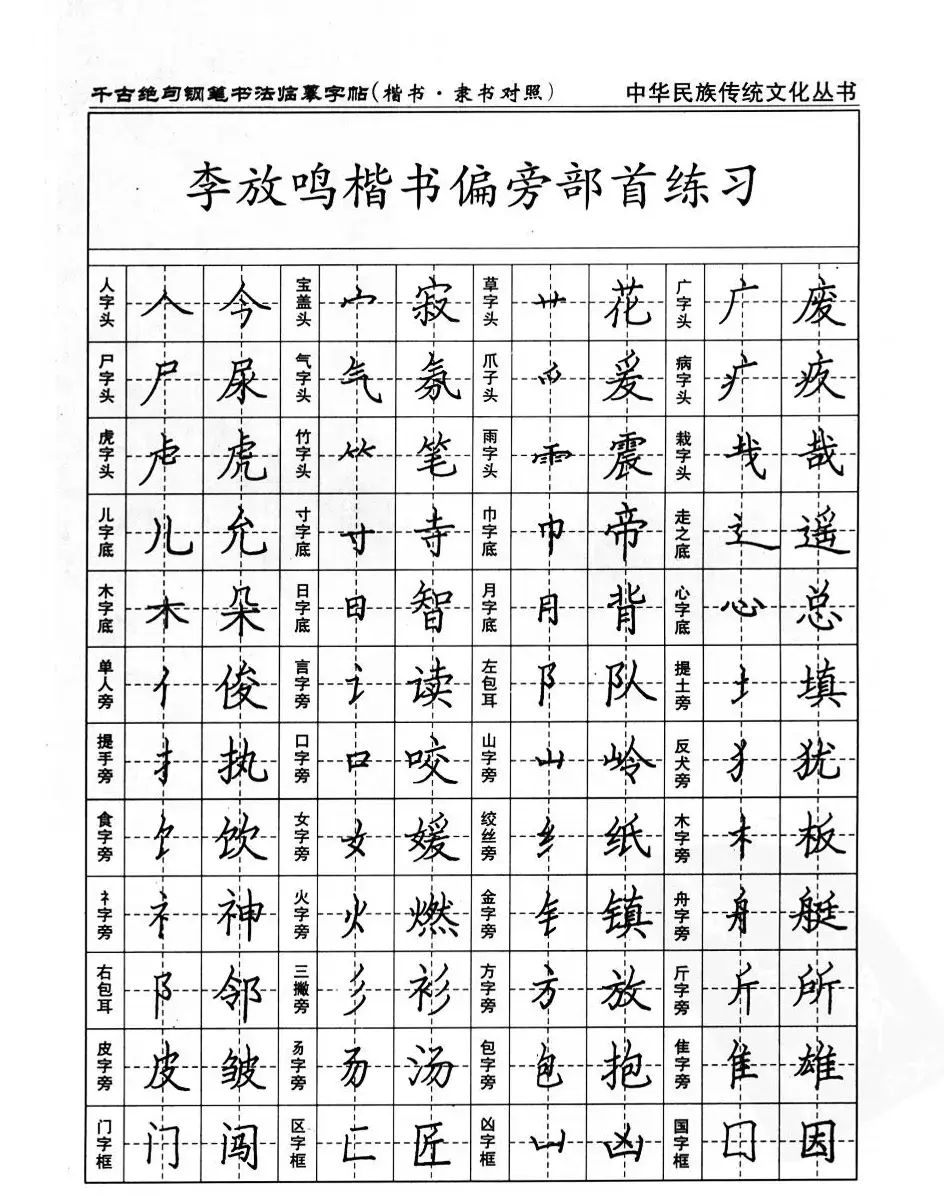 千古绝句钢笔书法临摹字帖(楷书·隶书对照) 中华民族传统文化丛书
李放鸣楷书偏旁部首练习
人字头 人 今 宝盖头 宀 寂 草字头 艹 花 广字头 广 废
尸字头 尸 尿 气字头 气 氛 爪子头 爫 爱 病字头 疒 疫
虎字头 虍 虎 竹字头 ⺮ 笔 雨字头 ⻗ 震 栽字头 𢦏 哉
儿字底 儿 允 寸字底 寸 寺 巾字底 巾 帝 走之底 辶 遥
木字底 木 朵 日字底 日 智 月字底 月 背 心字底 心 总
单人旁 亻 俊 言字旁 讠 读 左包耳 阝 队 提土旁 土 填
提手旁 扌 执 口字旁 口 咬 山字旁 山 岭 反犬旁 犭 犹
食字旁 饣 饮 女字旁 女 媛 绞丝旁 纟 纸 木字旁 木 板
礻字旁 礻 神 火字旁 火 燃 金字旁 钅 镇 舟字旁 舟 艇
右包耳 阝 邻 三撇旁 彡 衫 方字旁 方 放 斤字旁 斤 所
皮字旁 皮 皱 𠃓字旁 𠃓 汤 包字旁 包 抱 隹字旁 隹 雄
门字框 门 闯 区字框 匚 匠 凶字框 凵 凶 国字框 囗 因